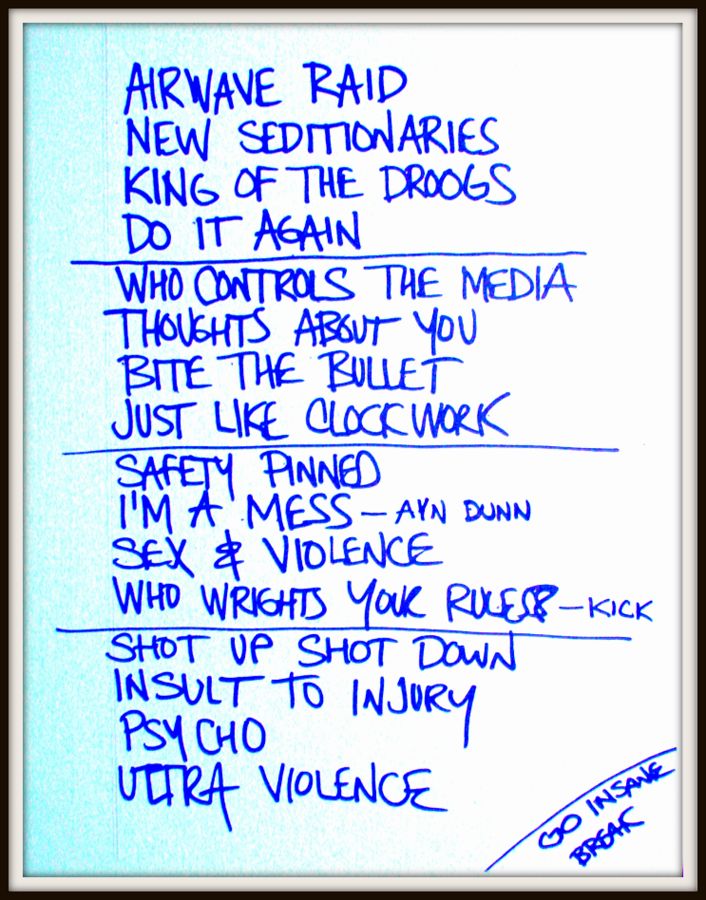 AIRWAVE RAID
NEW SEDITIONARIES
KING OF THE DROOGS
DO IT AGAIN
WHO CONTROLS THE MEDIA
THOUGHTS ABOUT YOU
BITE THE BULLET
JUST LIKE CLOCKWORK
SAFETY PINNED
I'M A MESS - AYN DUNN
SEX & VIOLENCE
WHO WRIGHTS YOUR RULES? - KICK
SHOT UP SHOT DOWN
INSULT TO INJURY
PSYCHO
ULTRA VIOLENCE
GO INSANE
BREAK